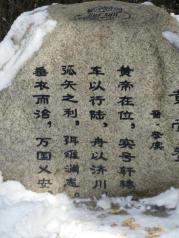 黄帝
晋 挚虞
黄帝在位，实号轩辕。
车以行陆，舟以济川。
弧矢之利，弭难消患。
垂衣而治，万国乂安。